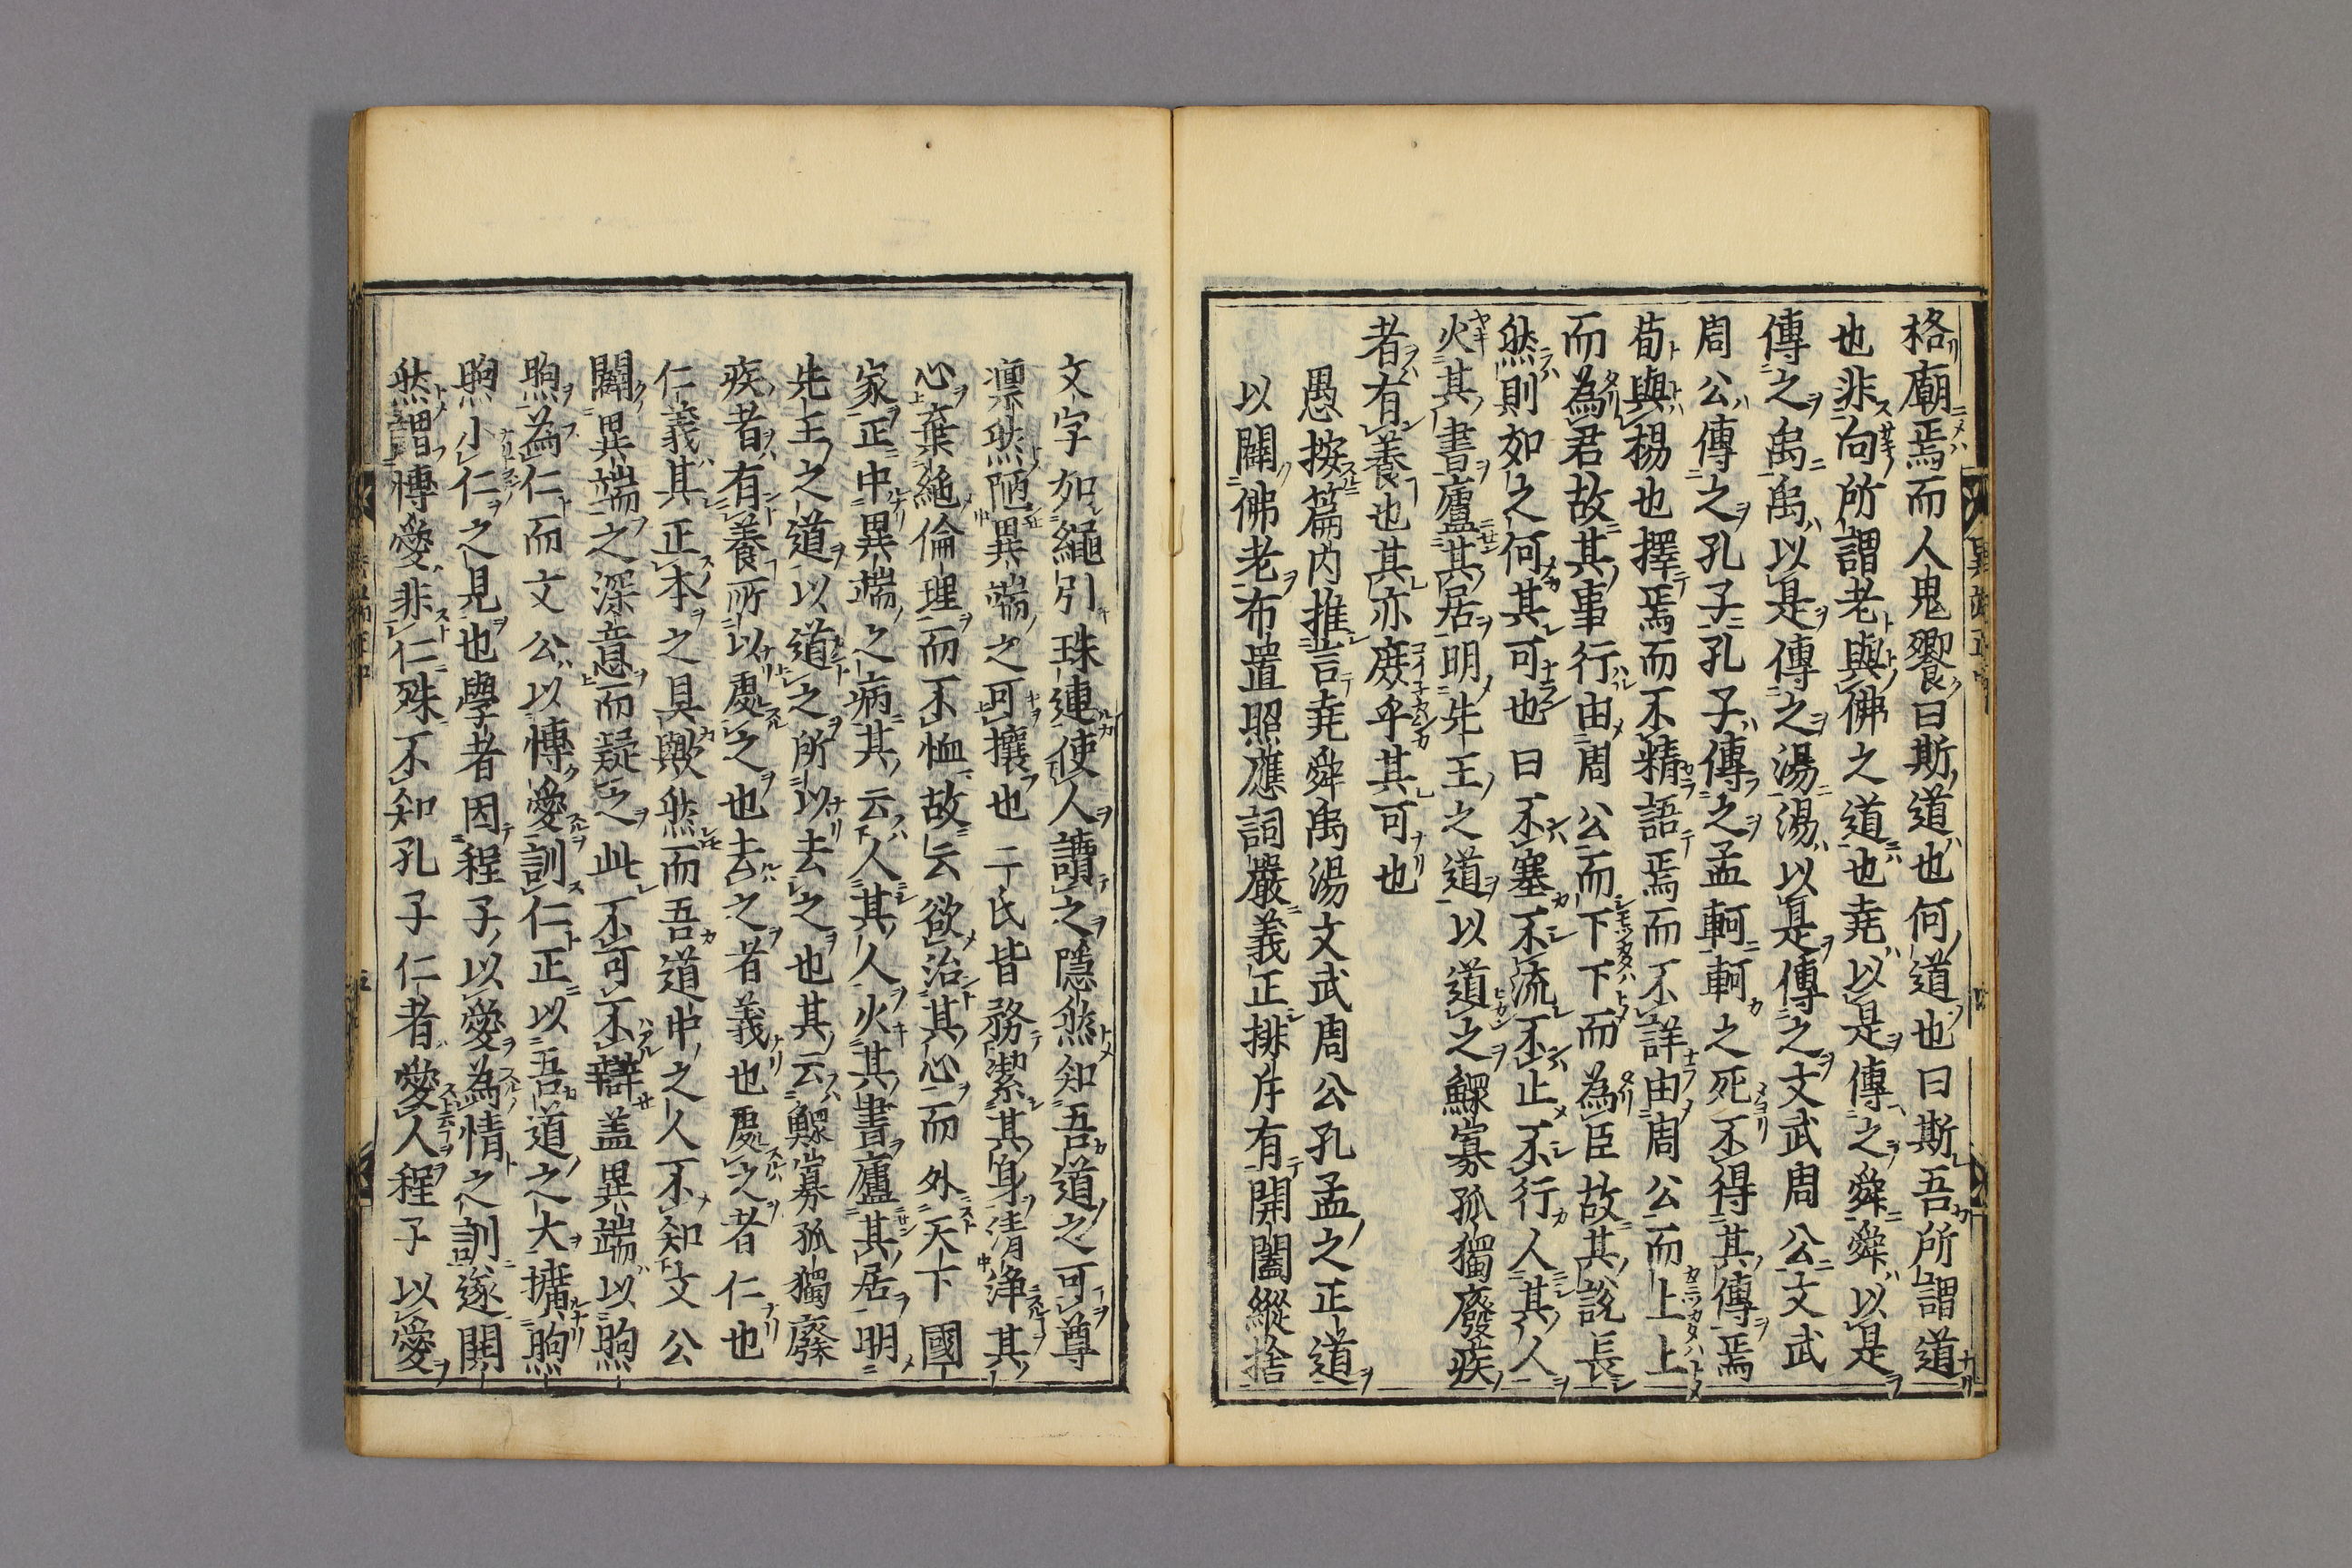 格廟焉而人鬼饗曰斯道也何道也曰斯吾所謂道
也非向所謂老與佛之道也堯以是傳之舜舜以是
傳之禹禹以是傳之湯湯以是傳之文武周公文武
周公傳之孔子孔子傳之孟軻軻之死不得其傳焉
荀與楊也擇焉而不精語焉而不詳由周公而上上
而為君故其事行由周公而下下而為臣故其說長
然則如之何其可也曰不塞不流不止不行人其人
火其書廬其居明先王之道以道之鰥寡孤獨廢疾
者有養也其亦庶乎其可也
愚按篇內推言堯舜禹湯文武周公孔孟之正道
以闢佛老布置照應詞嚴義正排斥有開闔縱捨
文字如繩引珠連使人讀之隱然知吾道之可尊
凛然陋異端之可攘也二氏皆務潔其身清淨其
心棄絶倫理而不恤故云欲治其心而外天下國
家正中異端之病其云人其人火其書廬其居明
先王之道以道之所以去之也其云鰥寡孤獨廢
疾者有養所以處之也去之者義也處之者仁也
仁義其正本之具歟然而吾道中之人不知文公
闢異端之深意而疑之此不可不辯盖異端以煦
煦為仁而文公以博愛訓仁正以吾道之大擴煦
煦小仁之見也學者因程子以愛為情之訓遂開
然謂博愛非仁殊不知孔子仁者愛人程子以愛